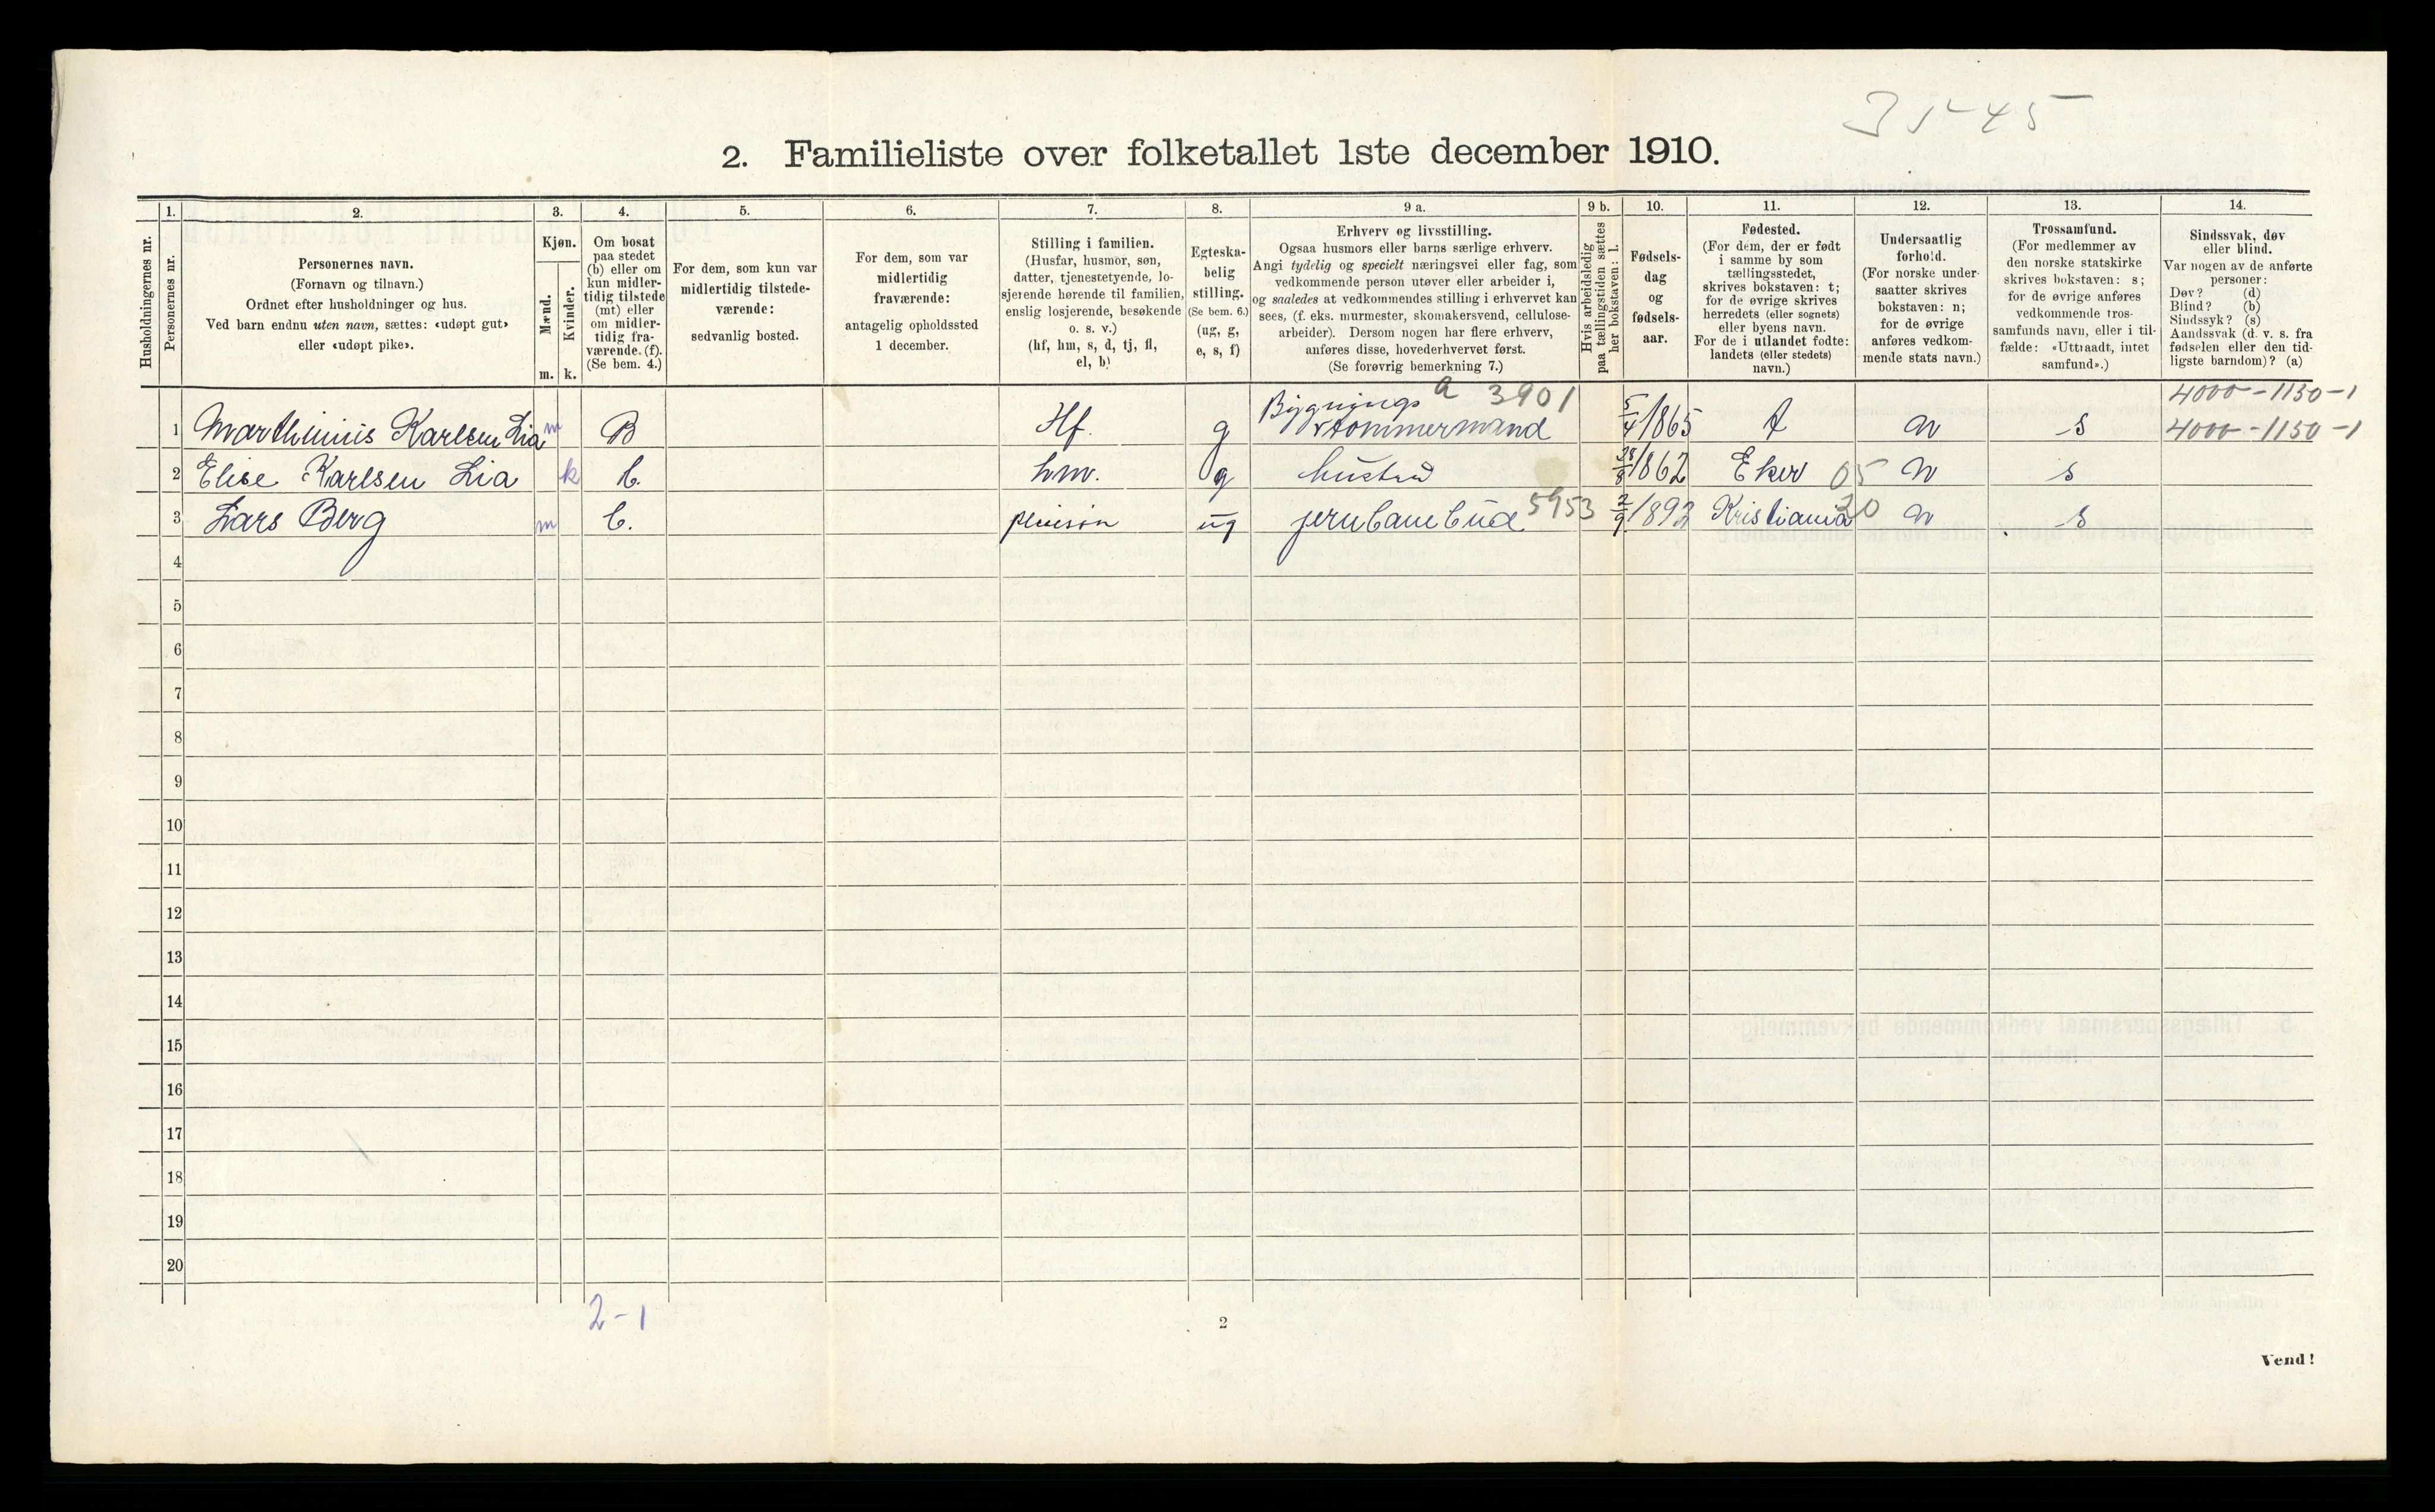 35-45
2. Familieliste over folketallet 1ste december 1910.
Husholdningernes nr.
1.
Personernes nr.
2.
Personernes navn.
(Fornavn og tilnavn.)
Ordnet efter husholdninger og hus.
Ved barn endnu uten navn, sættes: «udøpt gut»
eller «udøpt pike».
3.
Kjøn.
Mænd.
Kvinder.
m. k.
4.
Om bosat
paa stedet
(b) eller om
kun midler-
tidig tilstede
(mt) eller
om midler-
tidig fra-
værende. (f).
(Se bem. 4.)
5.
For dem, som kun var
midlertidig tilstede-
værende:
sedvanlig bosted.
6.
For dem, som var
midlertidig
fraværende:
antagelig opholdssted
1 december.
7.
Stilling i familien.
(Husfar, husmor, søn,
datter, tjenestetyende, lo-
sjerende hørende til familien,
enslig losjerende, besøkende
o. s. v.)
(hf, hm, s, d, tj, fl,
el, b)
8.
Egteska-
belig
stilling.
(Se bem. 6.)
(ug, g,
e, s, f)
9 a.
Erhverv og livsstilling.
Ogsaa husmors eller barns særlige erhverv.
Angi tydelig og specielt næringsvei eller fag, som
vedkommende person utøver eller arbeider i,
og saaledes at vedkommendes stilling i erhvervet kan
sees, (f. eks. murmester, skomakersvend, cellulose-
arbeider). Dersom nogen har flere erhverv,
anføres disse, hovederhvervet først.
(Se forøvrig bemerkning 7.)
9 b.
Hvis arbeidsledig
paa tællingstiden sættes
her bokstaven: l.
10.
Fødsels-
dag
og
fødsels-
aar.
11.
Fødested.
(For dem, der er født
i samme by som
tællingsstedet,
skrives bokstaven: t;
for de øvrige skrives
herredets (eller sognets)
eller byens navn.
For de i utlandet fødte:
landets (eller stedets)
navn.)
12.
Undersaatlig
forhold.
(For norske under-
saatter skrives
bokstaven: n;
for de øvrige
anføres vedkom-
mende stats navn.)
13.
Trossamfund.
(For medlemmer av
den norske statskirke
skrives bokstaven: s;
for de øvrige anføres
vedkommende tros-
samfunds navn, eller i til-
fælde: «Uttraadt, intet
samfund».)
14.
Sindssvak, døv
eller blind.
Var nogen av de anførte
personer:
Døv? (d)
Blind? (b)
Sindssyk? (s)
Aandssvak (d. v. s. fra
fødselen eller den tid-
ligste barndom)? (a)
a 3901 4000-1150-1
1 Marthinius Karlsen Lia m B Hf. g Bygnings tømmermand 5/4 1865 t n s 4000-1150-1
2 Elise Karlsen Lia k b. hm. g hustru 1862 Eker 05 n s
3 Lars Berg m b. ug jernbanebud 5953 2/9 1892 Kristiania 20 n s
4
5
6
7
8
9
10
11
12
13
14
15
16
17
18
19
20
2-1
2
Vend!